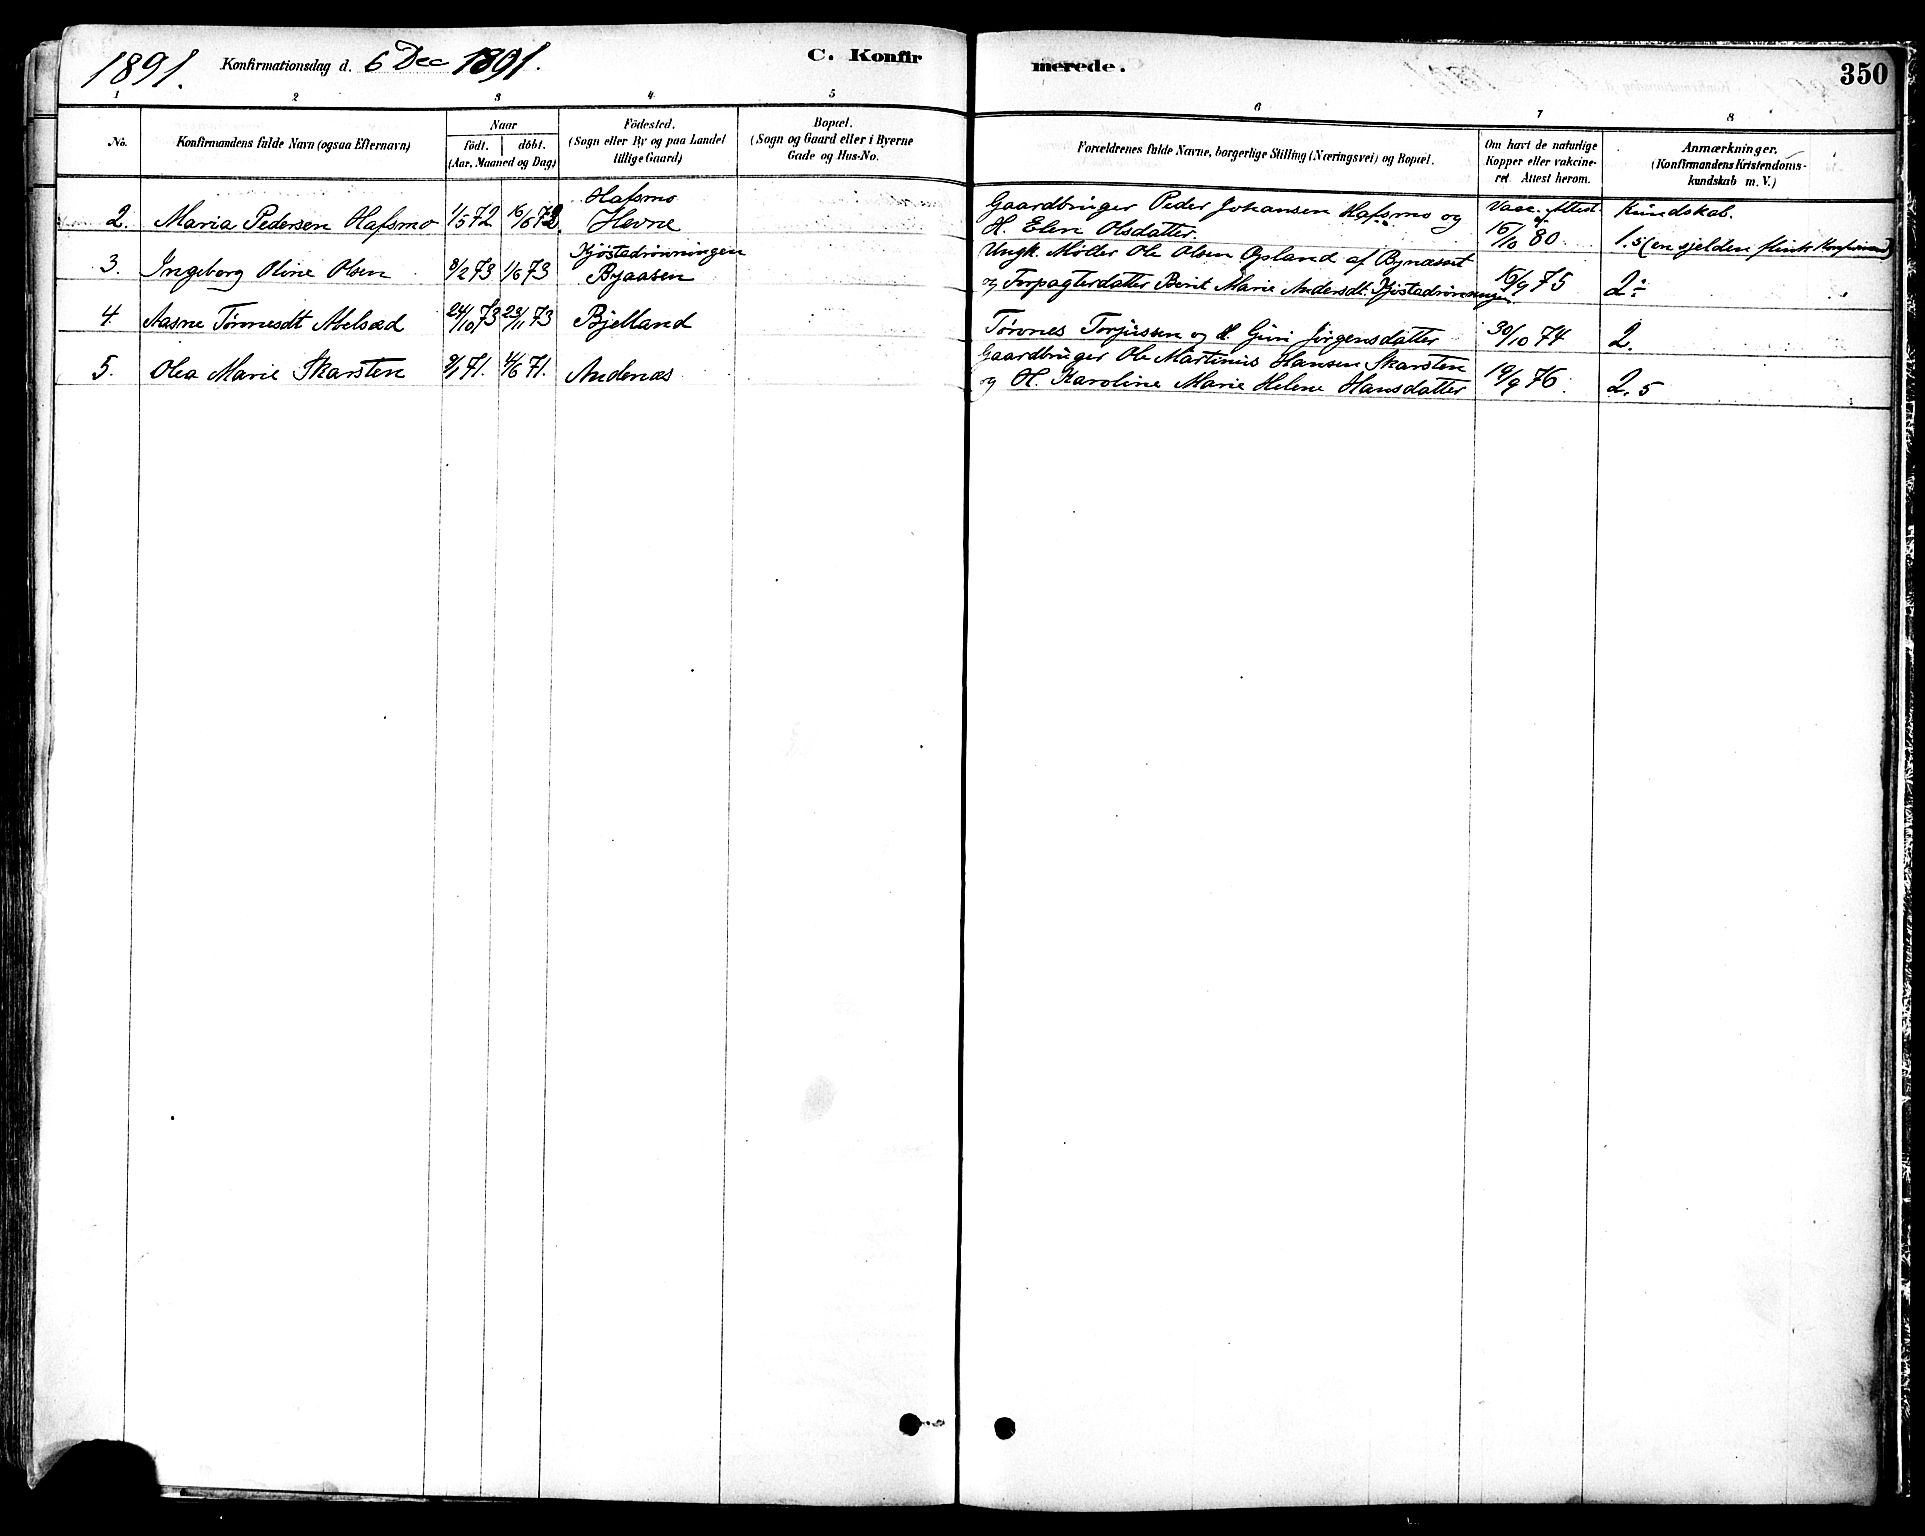 1891. Konfirmationsdag d. 6 Dec 1891. C. Konfirmerede. 350
1 2 3 4 5 6 7 8
No. Konfirmandens fulde Navn (ogsaa Efternavn) Naar födt. döbt. (Aar, Maaned og Dag)
Födested. (Sogn eller By og paa Landet tillige Gaard)
Bopæl. (Sogn og Gaard eller i Byerne Gade og Hus-No.
Forældrenes fulde Navne, borgerlige Stilling (Næringsvei) og Bopæl.
Om havt de naturlige Kopper eller vakcineret. Attest herom.
Anmærkninger. (Konfirmandens Kristendomskundskab m. V.)
2. Maria Pedersen Hafsmo 1/5 72 16/6 72. Hafsmo Hevne
Gaardbruger Peder Johansen Hafsmo og H. Elen Olsdatter.
Vacc. Attest af 15/10 80. Kundskab. 1.5 (en sjelden flink Konfirmand)
3. Ingeborg Oline Olsen 8/2 73 1/6 73 Kjöstadrönningen Byaasen
Ungk. Møller Ole Olsen Opland af Bynæsset
og Forpagterdatter Berit Marie Andersdt. Kjöstadrönningen. 16/9 75 2÷
4. Aasne Törresdt Abelsæd 24/10 73 23/11 73 Bjelland
Törres Torjussen og H Guri Jörgensdatter 30/10 74 2.
5. Olea Marie Skarsten 9/1 71. 4/6 71. Andenæs
Gaardbruger Ole Martinus Hansen Skarsten
og H. Karoline Marie Helene Hansdatter 19/9 76. 2.5